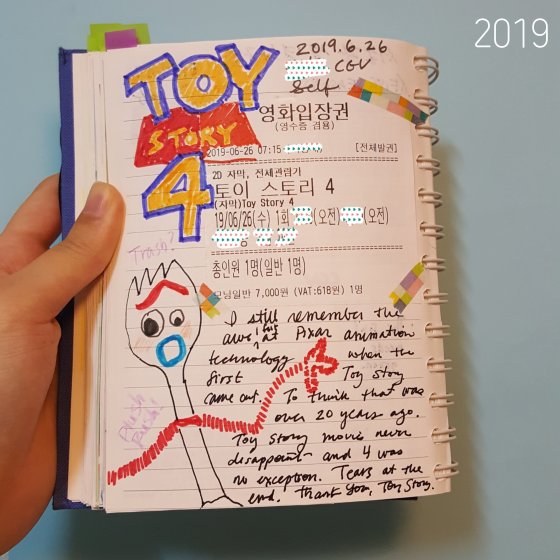 2019
TOY
STORY
4
2019.6.26
CGV
Self
영화입장권
(영수증 겸용)
2019-06-26 07:15- [전체발권]
2D 자막, 전체관람가
토이 스토리 4
(자막)Toy Story 4
19/06/26(수) 1회 (오전) (오전)
총인원 1명(일반 1명)
모닝일반 7,000원 (VAT:618원) 1명
Trash?
I still remember the
awe I felt at Pixar animation
technology when the
first Toy Story
came out. To think that was
over 20 years ago.
Toy Story movie never
disappoint and 4 was
no exception. Tears at the
end. Thank you, Toy Story.